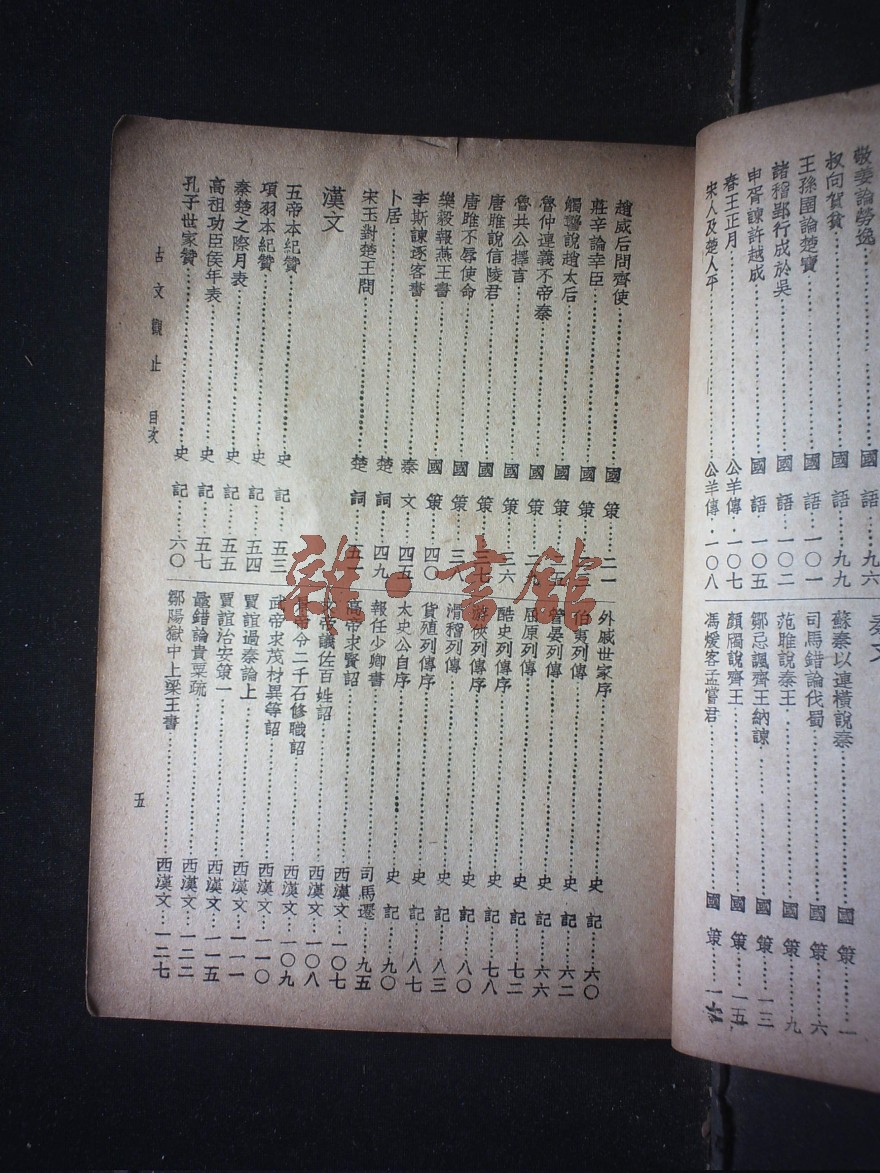 敬姜論勞逸……國語·九六
叔向賀貧……國語·九九
王孫圉論楚寶……國語·一〇一
諸稽郢行成於吳……國語·一〇二
申胥諫許越成……國語·一〇五
春王正月……公羊傳·一〇七
宋人及楚人平……公羊傳·一〇八
秦文
蘇秦以連橫說秦……國策……一
司馬錯論伐蜀……國策……六
范雎說秦王……國策……九
鄒忌諷齊王納諫……國策…一三
顏斶說齊王……國策…一五
馮煖客孟嘗君……國策…一六
趙威后問齊使……國策…二一
莊辛論幸臣……國策
觸讋說趙太后……國策
魯仲連義不帝秦……國策…二九
魯共公擇言……國策…三六
唐雎說信陵君……國策…三七
唐雎不辱使命……國策…三八
樂毅報燕王書……國策…四〇
李斯諫逐客書……秦文…四五
卜居……楚詞…四九
宋玉對楚王問……楚詞…五一
漢文
五帝本紀贊……史記…五三
項羽本紀贊……史記…五四
秦楚之際月表……史記…五五
高祖功臣侯年表……史記…五七
孔子世家贊……史記…六〇
外戚世家序……史記…六〇
伯夷列傳……史記…六二
管晏列傳……史記…六六
屈原列傳……史記…七二
酷史列傳序……史記…七八
游俠列傳序……史記…八〇
滑稽列傳……史記…八三
貨殖列傳序……史記…八七
太史公自序……史記…九〇
報任少卿書……司馬遷…九五
高帝求賢詔……西漢文…一〇七
文帝議佐百姓詔……西漢文…一〇八
景帝令二千石修職詔……西漢文…一〇九
武帝求茂材異等詔……西漢文…一一〇
賈誼過秦論上……西漢文…一一一
賈誼治安策一……西漢文…一一五
鼂錯論貴粟疏……西漢文…一二二
鄒陽獄中上梁王書……西漢文…一二七
古文觀止 目次
五
雜·書館